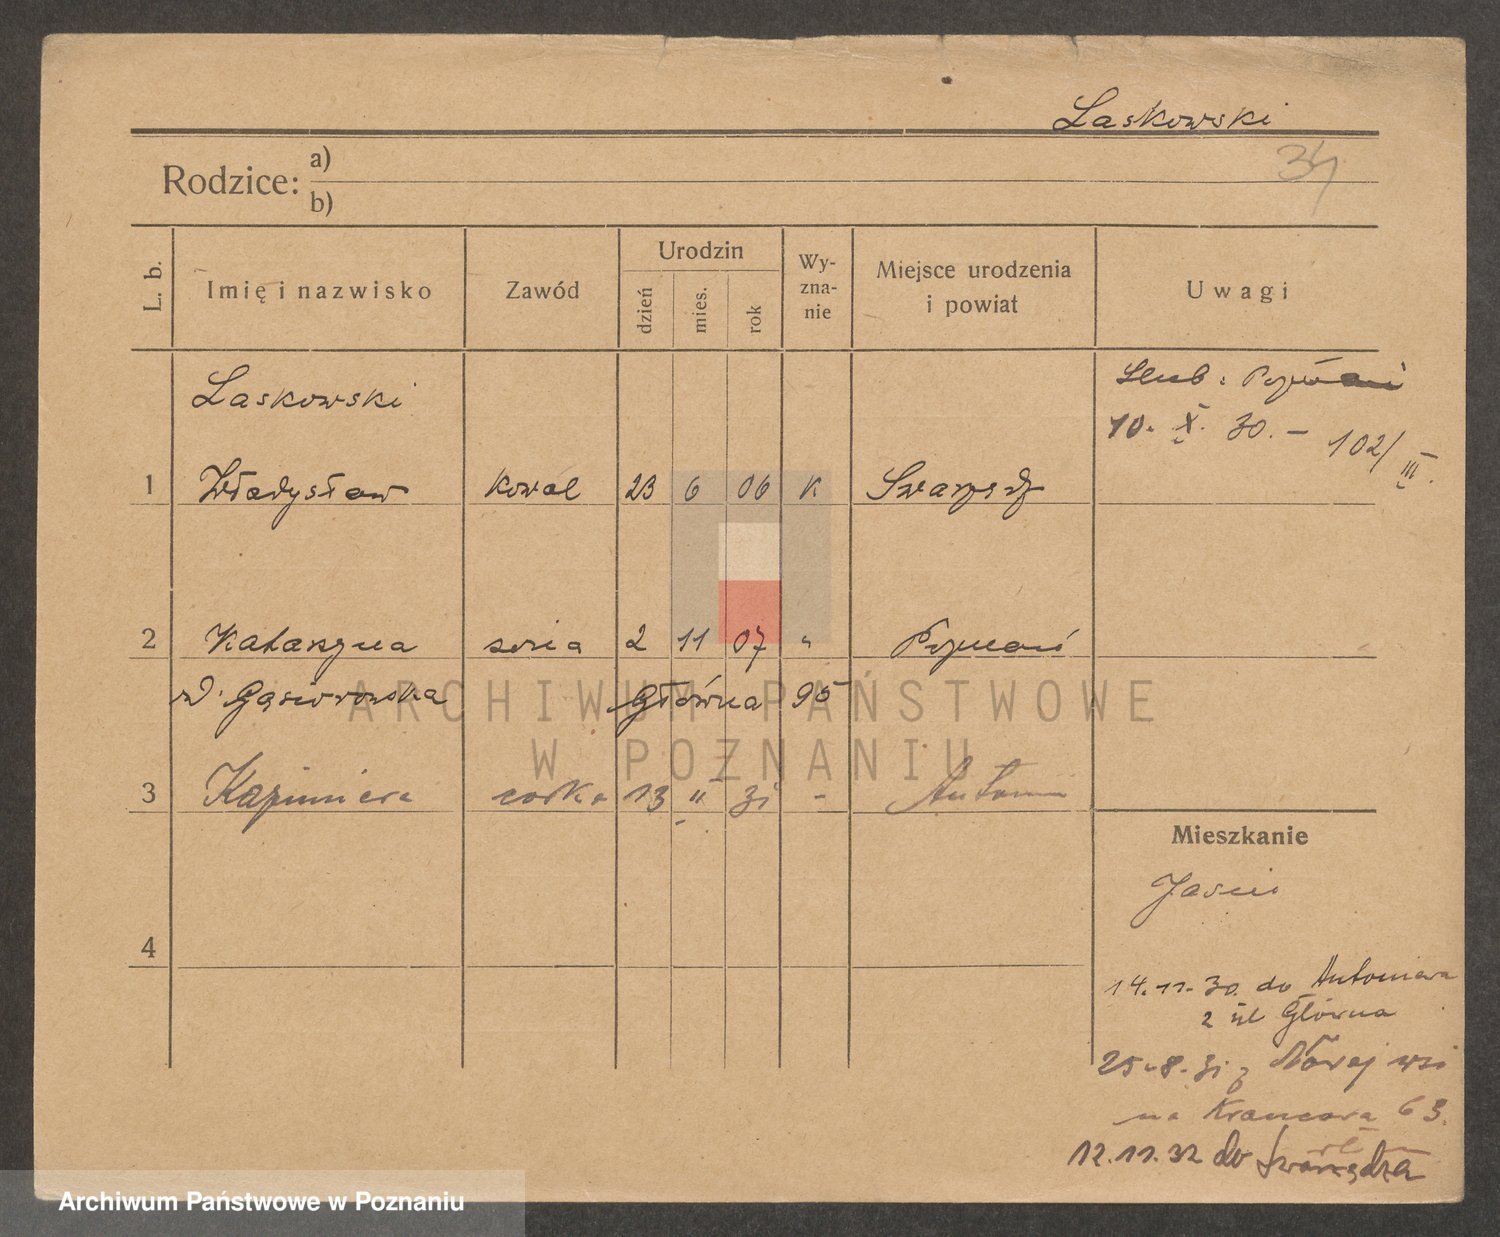 Laskowski
34
Rodzice:
a)
b)
L. b.
Imię i nazwisko
Zawód
Urodzin
dzień
mies.
rok
Wy-
zna-
nie
Miejsce urodzenia
i powiat
Uwagi
Laskowski
Ślub: Poznań
10. X. 30. – 102/III.
1 Władysław kowal 23 6 06 K Swarzędz
2 Katarzyna żona 2 11 07 " Poznań
Gąsiorowska Główna 95
3 Kazimiera córka 13 II 31 - Antonin
4
Mieszkanie
Jasin
14.11.30. do Antonina
2 ul Główna
25.8.31 z Nowej wsi
na Krańcową 63.
12.11.32 do Swarzędza
ARCHIWUM PAŃSTWOWE
W POZNANIU
Archiwum Państwowe w Poznaniu